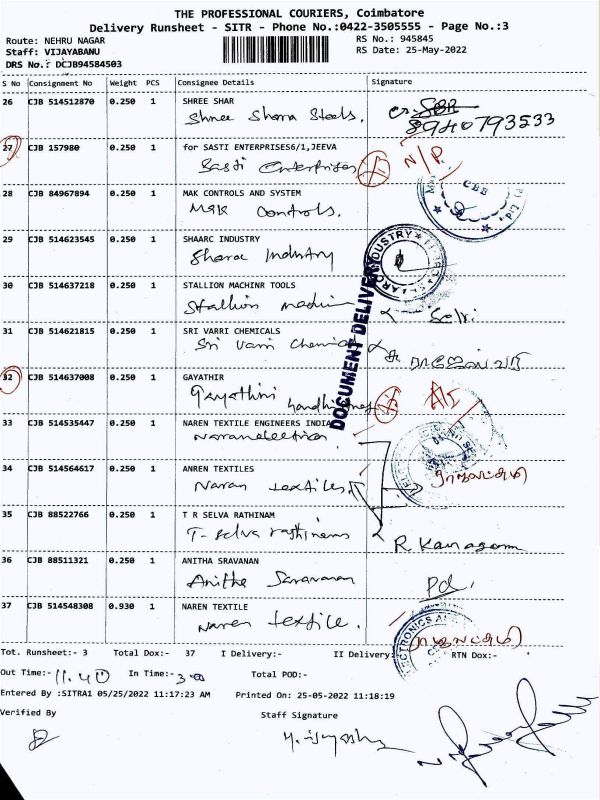 THE PROFESSIONAL COURIERS, Coimbatore
Delivery Runsheet - SITR - Phone No.:0422-3505555 - Page No.:3
Route: NEHRU NAGAR
RS No.: 945845
Staff: VIJAYABANU
RS Date: 25-May-2022
DRS No.: DCJB94584503
S No Consignment No Weight PCS Consignee Details Signature
26 CJB 514512870 0.250 1 SHREE SHAR
Shree Sharra Steels. 8940793533
27 CJB 157980 0.250 1 for SASTI ENTERPRISES6/1,JEEVA
Sasti Enterprises N/P
28 CJB 84967894 0.250 1 MAK CONTROLS AND SYSTEM
Mak Controls.
CBE
29 CJB 514623545 0.250 1 SHAARC INDUSTRY
Sharac Industry
INDUSTRY
30 CJB 514637218 0.250 1 STALLION MACHINR TOOLS
Stallion Selvi
DOCUMENT DELIVERY
31 CJB 514621815 0.250 1 SRI VARRI CHEMICALS
Sri Varri
32 CJB 514637008 0.250 1 GAYATHIR
Gayathiri
33 CJB 514535447 0.250 1 NAREN TEXTILE ENGINEERS INDIA
34 CJB 514564617 0.250 1 ANREN TEXTILES
Naran textiles.
35 CJB 88522766 0.250 1 T R SELVA RATHINAM
T- Selva rathinam R Kanagam
36 CJB 88511321 0.250 1 ANITHA SRAVANAN
Anitha Saravanan
37 CJB 514548308 0.930 1 NAREN TEXTILE
Naren textile.
Tot. Runsheet:- 3 Total Dox:- 37 I Delivery:- II Delivery: RTN Dox:-
Out Time:- 11.40 In Time:- 3.00 Total POD:-
Entered By :SITRA1 05/25/2022 11:17:23 AM Printed On: 25-05-2022 11:18:19
Verified By Staff Signature